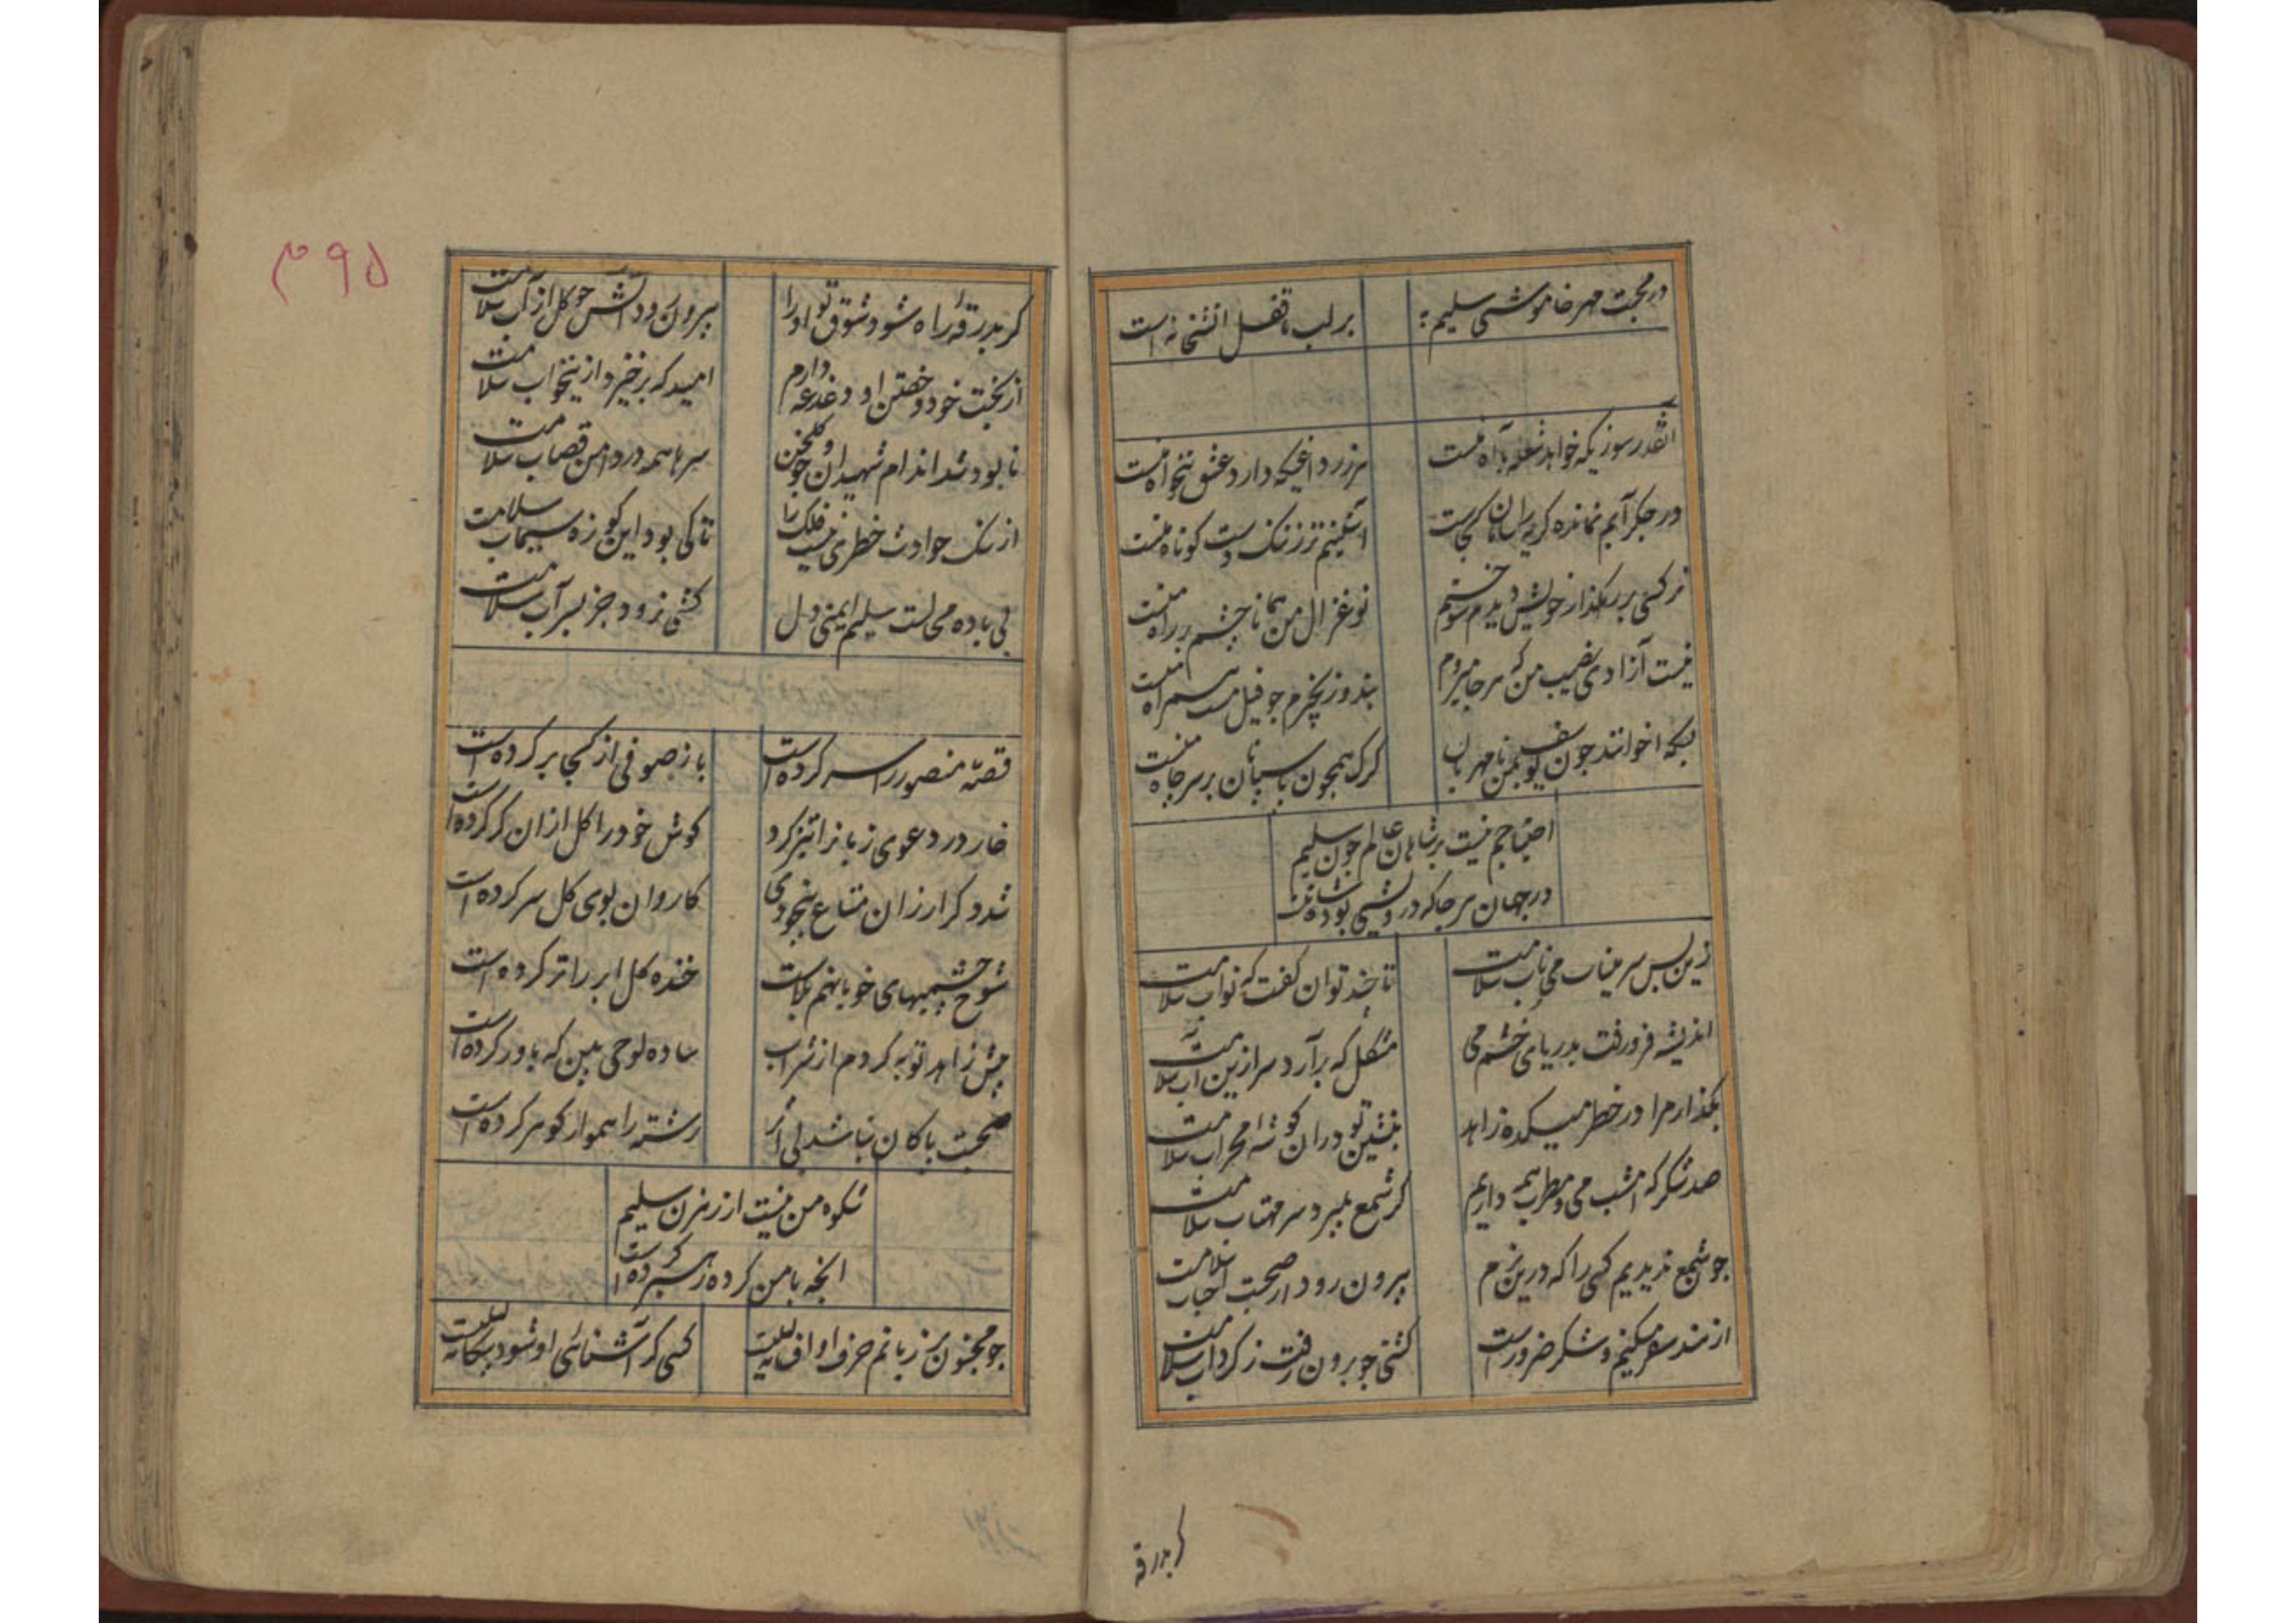 در محبت مهر خاموشی سلیم
بر لب ما قفل آتشخانه است
آنقدر سوزیکه خواهد شعله با آه منست
هرزر داغیکه دارد عشق تنخواه منست
در جکر آبم نمانده کریه را سامان کجاست
آستینم تر ز ننک دست کوتاه منست
نرکسی بر رهکذار خویش دیدم سوختم
نوغزال من همانا چشم بر راه منست
نیست آزادی نصیب من که هر جا میروم
بند و زنجیرم جو فیل مست همراه منست
بسکه اخوانند جون یوسف بمن نامهربان
کرک همچون پاسبان بر سر جاه منست
احتیاجم نیست بر شاهان عالم جون سلیم
در جهان هر جا که درویشی بود شاه منست
زین پس سر میناب می ناب سلامت
تا جند توان کفت که نواب سلامت
اندیشه فرو رفت بدریای خشم می
مشکل که برآرد سر ازین آب سلامت
بکذار مرا در خطر میکده زاهد
بنشین تو در آن کوشه محراب سلامت
صد شکر که امشب می و مطرب همه داریم
کر شمع بمیرد سر مهتاب سلامت
جون شمع ندیدیم کسی را که درین بزم
بیرون رود از صحبت احباب سلامت
از هند سفر میکنم و شکر ضرور است
کشتی جو برون رفت ز کرداب سلامت
کر بدرقه
۳۹۵
کر بدرقه راه شود شوق تو او را
بیرون رود آتش جو کل از آب سلامت
از بخت خود و خفتن او دغدغه دارم
امید که برخیزد ازینخواب سلامت
نابود شد اندام شهیدان جو کل و خون
سرها همه در دامن قصاب سلامت
از سنک حوادث خطری نیست فلک را
تا کی بود این کوزه سیماب سلامت
بی باده محالست سلیم ایمنی دل
کشتی نرود جز بسر آب سلامت
قصه منصور را سر کرده است
باز صوفی از کجا بر کرده است
خار در دعوی زبانرا تیز کرد
کوش خود را کل از آن کر کرده است
شد دکر ارزان متاع بیخودی
کاروان بوی کل سر کرده است
شوخ چشمیهای خوبانهم بلاست
خنده کل ابر را تر کرده است
پیش زاهد توبه کردم از شراب
ساده لوحی بین که باور کرده است
صحبت پاکان نباشد بی اثر
رشته را هموار کوهر کرده است
شکوه من نیست از رهزن سلیم
آنچه با من کرده رهبر کرده است
جو مجنون بر زبانم حرف او افسانه لیلیست
کسی کر آشنائی او شود بیکانه لیلیست